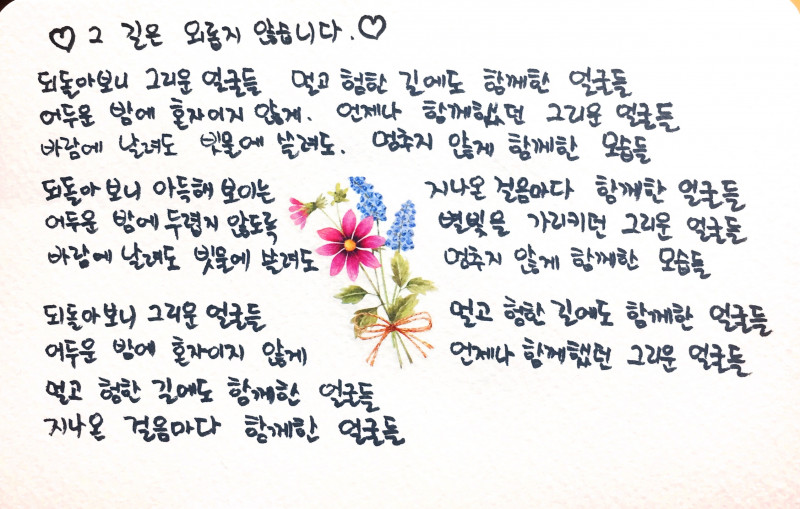 ♡ 그 길은 외롭지 않습니다. ♡
되돌아보니 그리운 얼굴들 멀고 험한 길에도 함께한 얼굴들
어두운 밤에 혼자이지 않게. 언제나 함께했던 그리운 얼굴들
바람에 날려도 빗물에 쓸려도. 멈추지 않게 함께한 모습들
되돌아 보니 아득해 보이는 지나온 걸음마다 함께한 얼굴들
어두운 밤에 두렵지 않도록 별빛을 가리키던 그리운 얼굴들
바람에 날려도 빗물에 쓸려도 멈추지 않게 함께한 모습들
되돌아보니 그리운 얼굴들 멀고 험한 길에도 함께한 얼굴들
어두운 밤에 혼자이지 않게 언제나 함께했던 그리운 얼굴들
멀고 험한 길에도 함께한 얼굴들
지나온 걸음마다 함께한 얼굴들